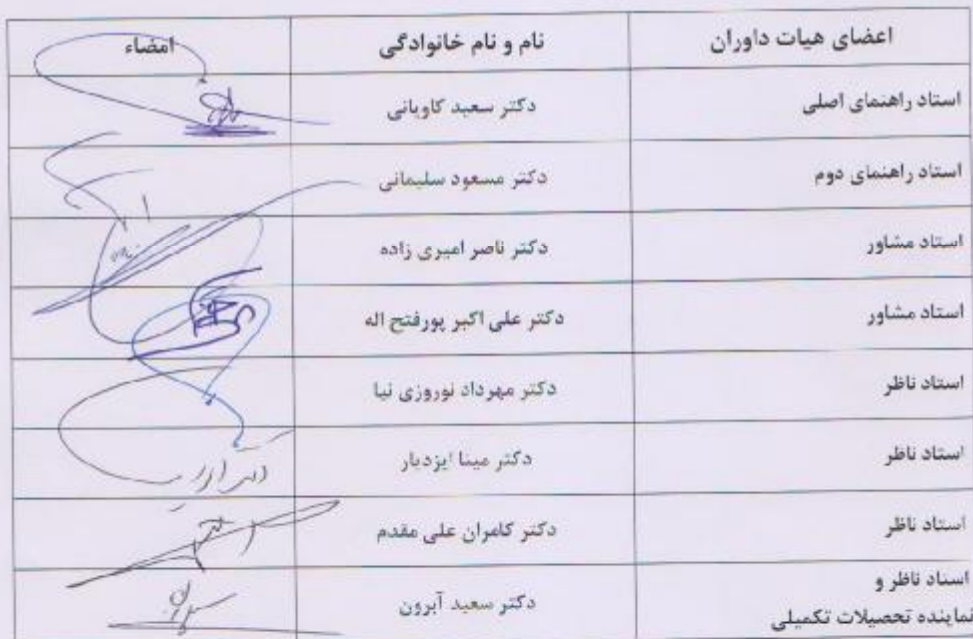 اعضای هیات داوران	نام و نام خانوادگی	امضاء
استاد راهنمای اصلی	دکتر سعید کاویانی
استاد راهنمای دوم	دکتر مسعود سلیمانی
استاد مشاور	دکتر ناصر امیری زاده
استاد مشاور	دکتر علی اکبر پورفتح اله
استاد ناظر	دکتر مهرداد نوروزی نیا
استاد ناظر	دکتر مینا ایزدیار
استاد ناظر	دکتر کامران علی مقدم
استاد ناظر و
نماینده تحصیلات تکمیلی	دکتر سعید آبرون